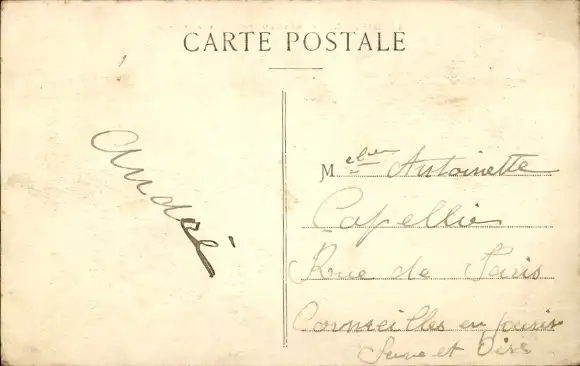 CARTE POSTALE
André
Melle Antoinette
Capellie
Rue de Paris
Cormeilles en parisis
Seine et Oise